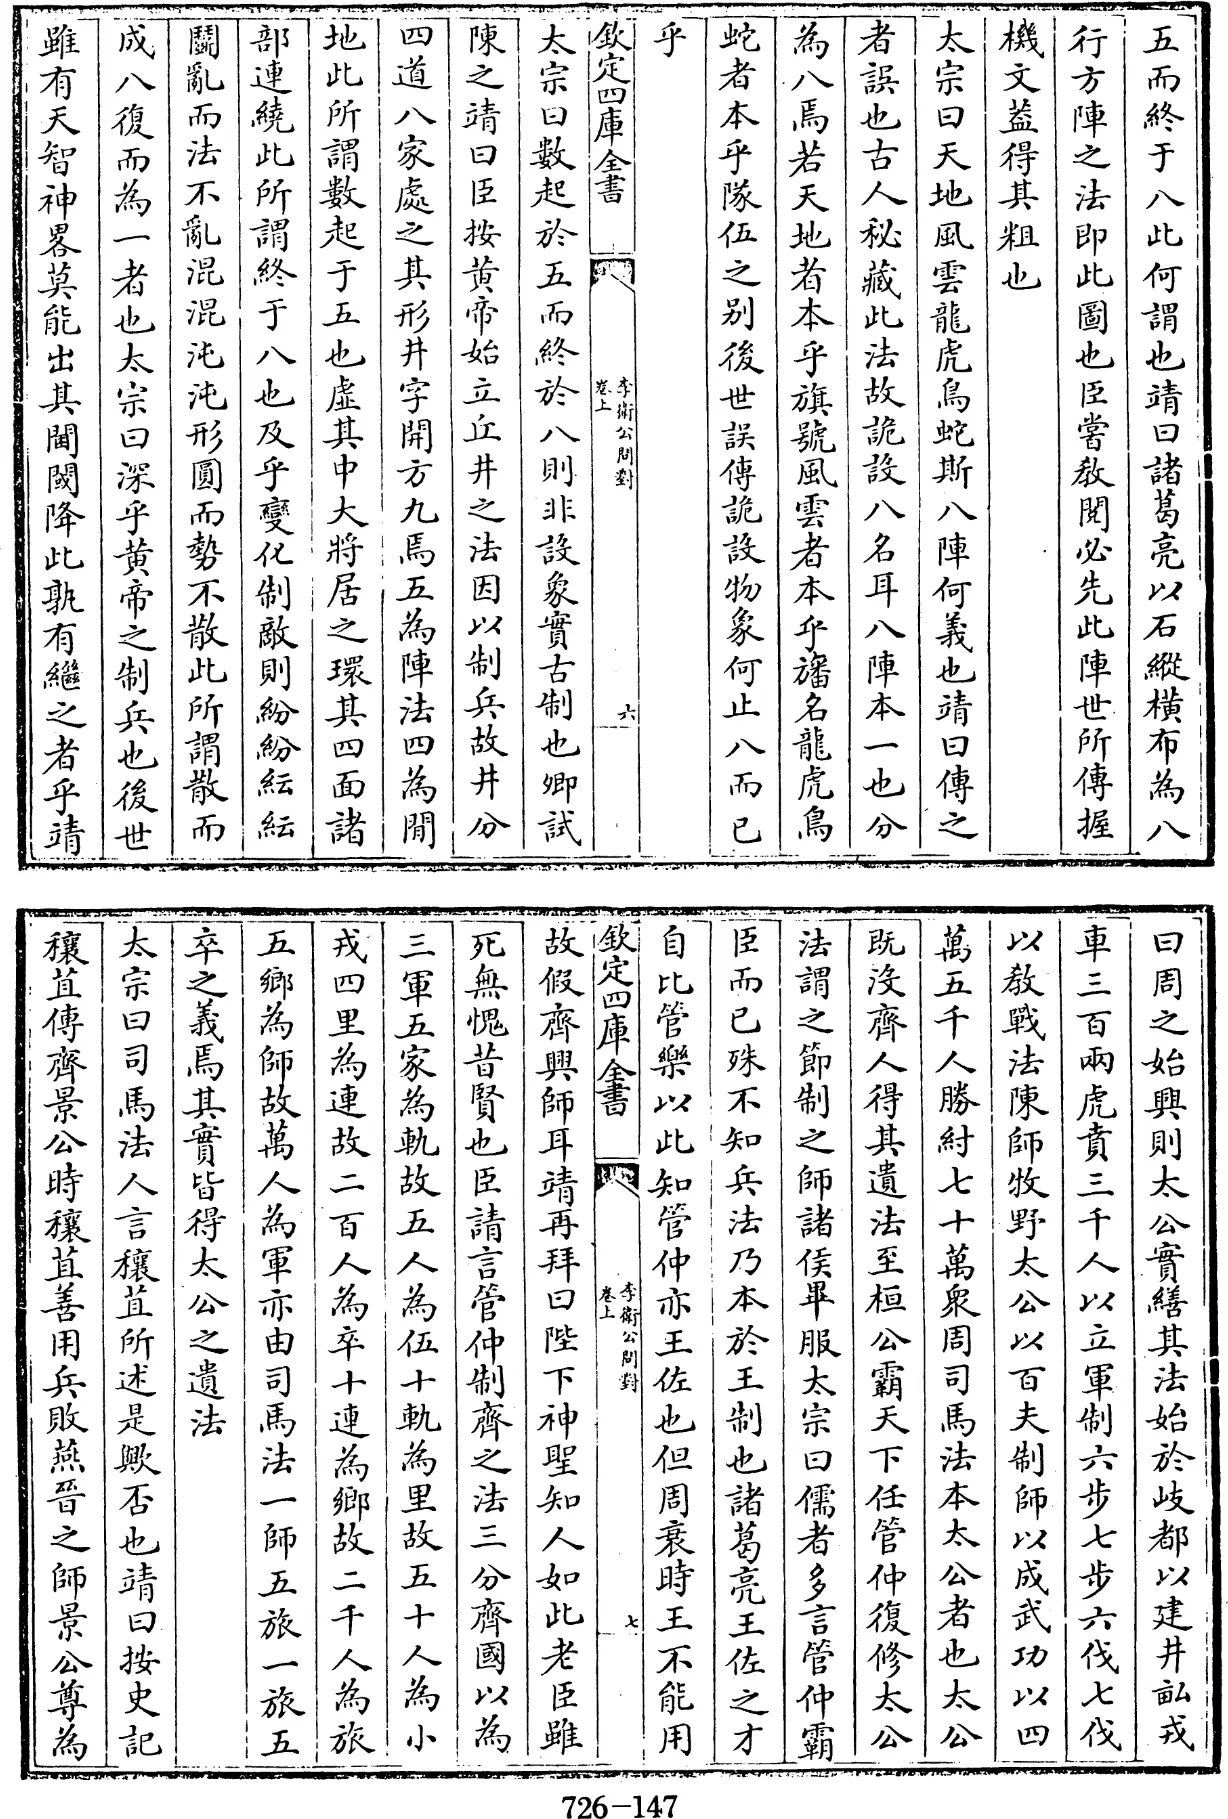 五而終于八此何謂也靖曰諸葛亮以石縱横布為八
行方陣之法即此圖也臣嘗敎閲必先此陣世所傳握
機文葢得其粗也
太宗曰天地風雲龍虎鳥蛇斯八陣何義也靖曰傳之
者誤也古人秘藏此法故詭設八名耳八陣本一也分
為八焉若天地者本乎旗號風雲者本乎旛名龍虎鳥
蛇者本乎隊伍之别後世誤傳詭設物象何止八而已
乎
欽定四庫全書
李衛公問對
卷上
六
太宗曰數起於五而終於八則非設象實古制也卿試
陳之靖曰臣按黄帝始立丘井之法因以制兵故井分
四道八家處之其形井字開方九焉五為陣法四為閒
地此所謂數起于五也虚其中大將居之環其四面諸
部連繞此所謂終于八也及乎變化制敵則紛紛紜紜
鬬亂而法不亂混混沌沌形圓而勢不散此所謂散而
成八復而為一者也太宗曰深乎黄帝之制兵也後世
雖有天智神畧莫能出其閫閾降此孰有繼之者乎靖
曰周之始興則太公實繕其法始於岐都以建井畝戎
車三百兩虎賁三千人以立軍制六步七步六伐七伐
以敎戰法陳師牧野太公以百夫制師以成武功以四
萬五千人勝紂七十萬衆周司馬法本太公者也太公
既沒齊人得其遺法至桓公霸天下任管仲復修太公
法謂之節制之師諸侯畢服太宗曰儒者多言管仲霸
臣而已殊不知兵法乃本於王制也諸葛亮王佐之才
自比管樂以此知管仲亦王佐也但周衰時王不能用
欽定四庫全書
李衛公問對
卷上
七
故假齊興師耳靖再拜曰陛下神聖知人如此老臣雖
死無愧昔賢也臣請言管仲制齊之法三分齊國以為
三軍五家為軌故五人為伍十軌為里故五十人為小
戎四里為連故二百人為卒十連為鄉故二千人為旅
五鄉為師故萬人為軍亦由司馬法一師五旅一旅五
卒之義焉其實皆得太公之遺法
太宗曰司馬法人言穰苴所述是歟否也靖曰按史記
穰苴傳齊景公時穰苴善用兵敗燕晉之師景公尊為
726-147